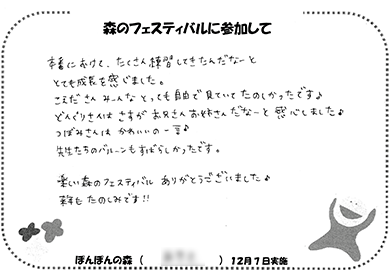 森のフェスティバルに参加して
本番にむけて、たくさん練習してきたんだなーと
とても成長を感じました。
こえださん みーんな とっても自由で見ていてたのしかったです♪
どんぐりさんは さすが お兄さんお姉さんだなーと 感心しました♪
つぼみさんは かわいいの一言♪
先生たちのバルーンもすばらしかったです。
楽しい森のフェスティバル ありがとうございました♪
来年も たのしみです!!
ぽんぽんの森( )12月7日実施